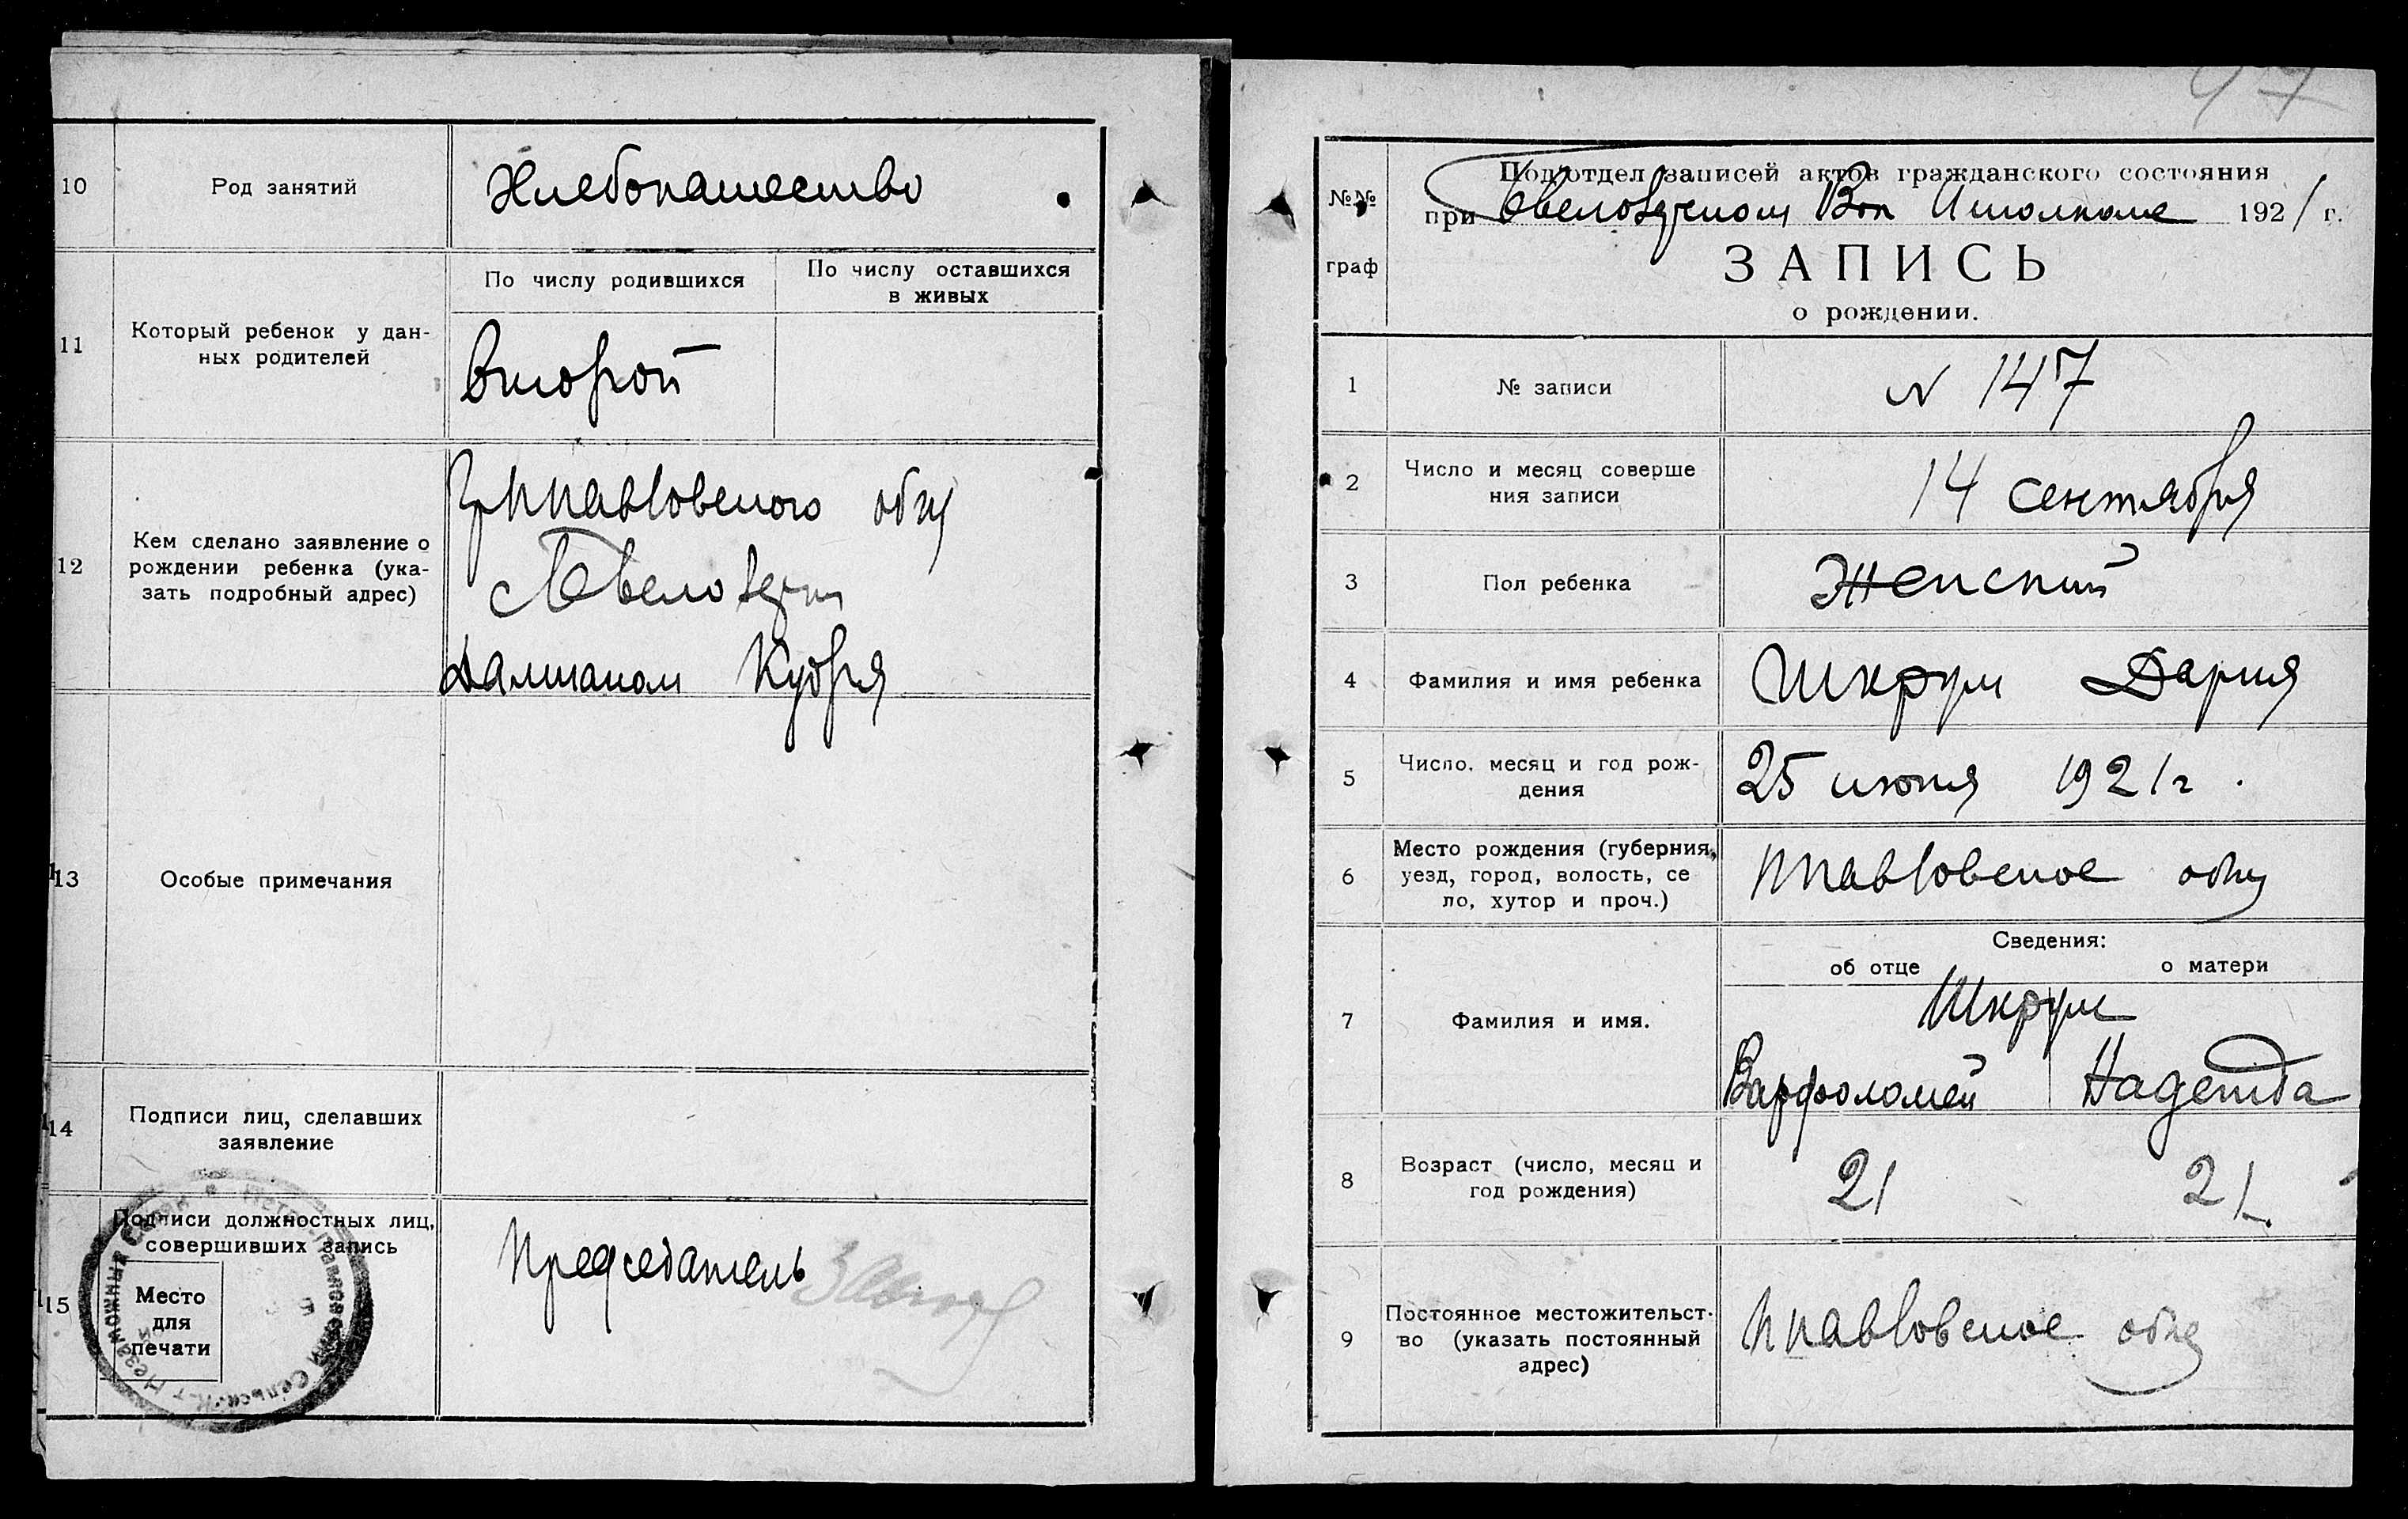 10
Род занятий
Хлебопашество
11
Который ребенок у дан-
ных родителей
По числу родившихся
По числу оставшихся
в живых
Второй
12
Кем сделано заявление о
рождении ребенка (ука-
зать подробный адрес)
общ
Кудря
13
Особые примечания
14
Подписи лиц, сделавших
заявление
15
Подписи должностных лиц,
совершивших запись
Место
для
печати
Председатель
47
№№
граф
Подотдел записей актов гражданского состояния
при Вол Исполкоме 1921 г.
ЗАПИСЬ
о рождении.
1
№ записи
N 147
2
Число и месяц соверше
ния записи
14 сентября
3
Пол ребенка
Женский
4
Фамилия и имя ребенка
Шкрум Дария
5
Число, месяц и год рож-
дения
25 июня 1921 г.
6
Место рождения (губерния,
уезд, город, волость, се
ло, хутор и проч.)
Ппавловское общ
7
Фамилия и имя.
Сведения:
об отце
о матери
Шкрум
Варфоломей
Надежда
8
Возраст (число, месяц и
год рождения)
21
21
9
Постоянное местожительст-
во (указать постоянный
адрес)
Ппавловское общ